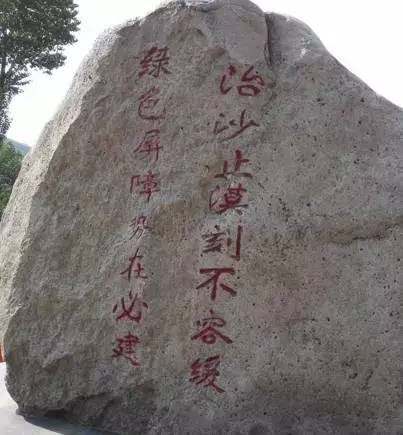 治沙止漠刻不容缓
绿色屏障势在必建